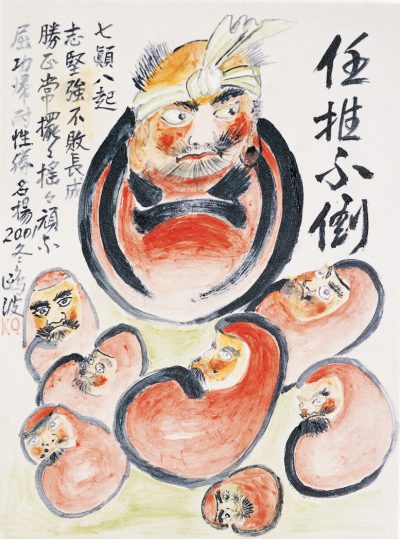 任推不倒
七顛八起
志堅強不敗長成
勝正常擺々搖々頑不
屈功歸耐性勝名揚2001冬
KO